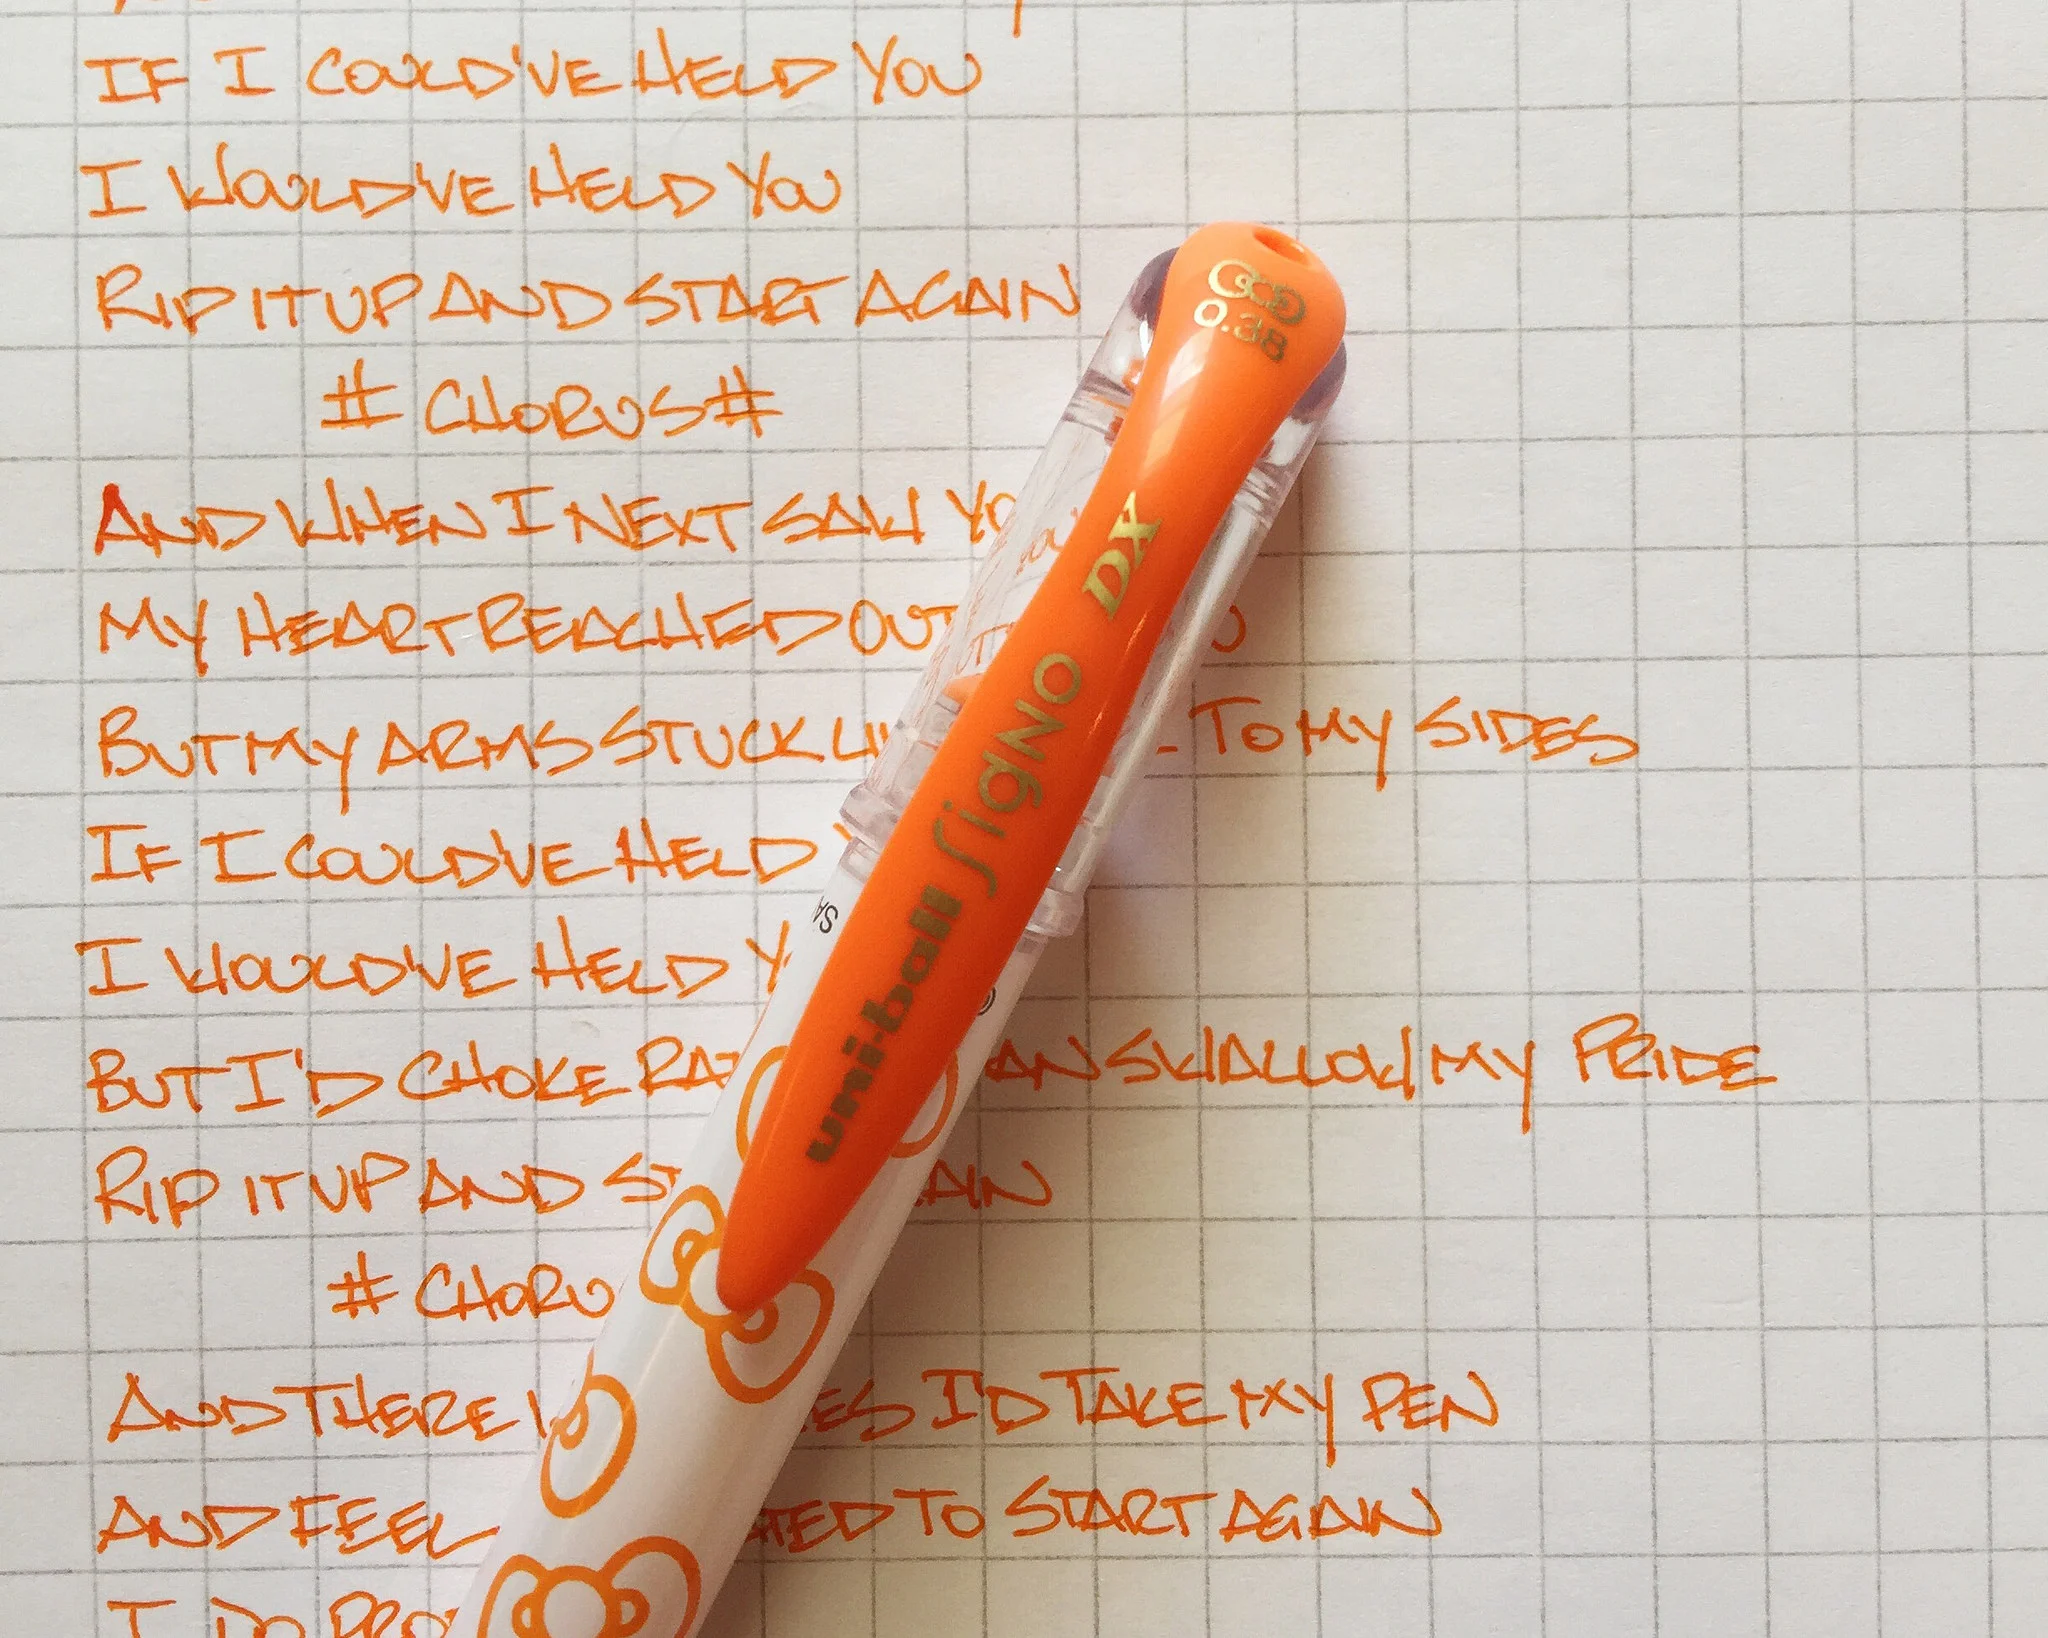 IF I COULD'VE HELD YOU
I WOULD'VE HELD YOU
RIP IT UP AND START AGAIN
# CHORUS #
AND WHEN I NEXT SAW
MY HEART REACHED OUT
BUT MY ARMS STUCK TO MY SIDES
IF I COULD'VE HELD
I WOULD'VE HELD
BUT I'D CHOKE SWALLOW MY PRIDE
RIP IT UP AND
#
AND THERE I'D TAKE MY PEN
AND FEEL TO START AGAIN
I DO
0.38
uni-ball SigNo DX